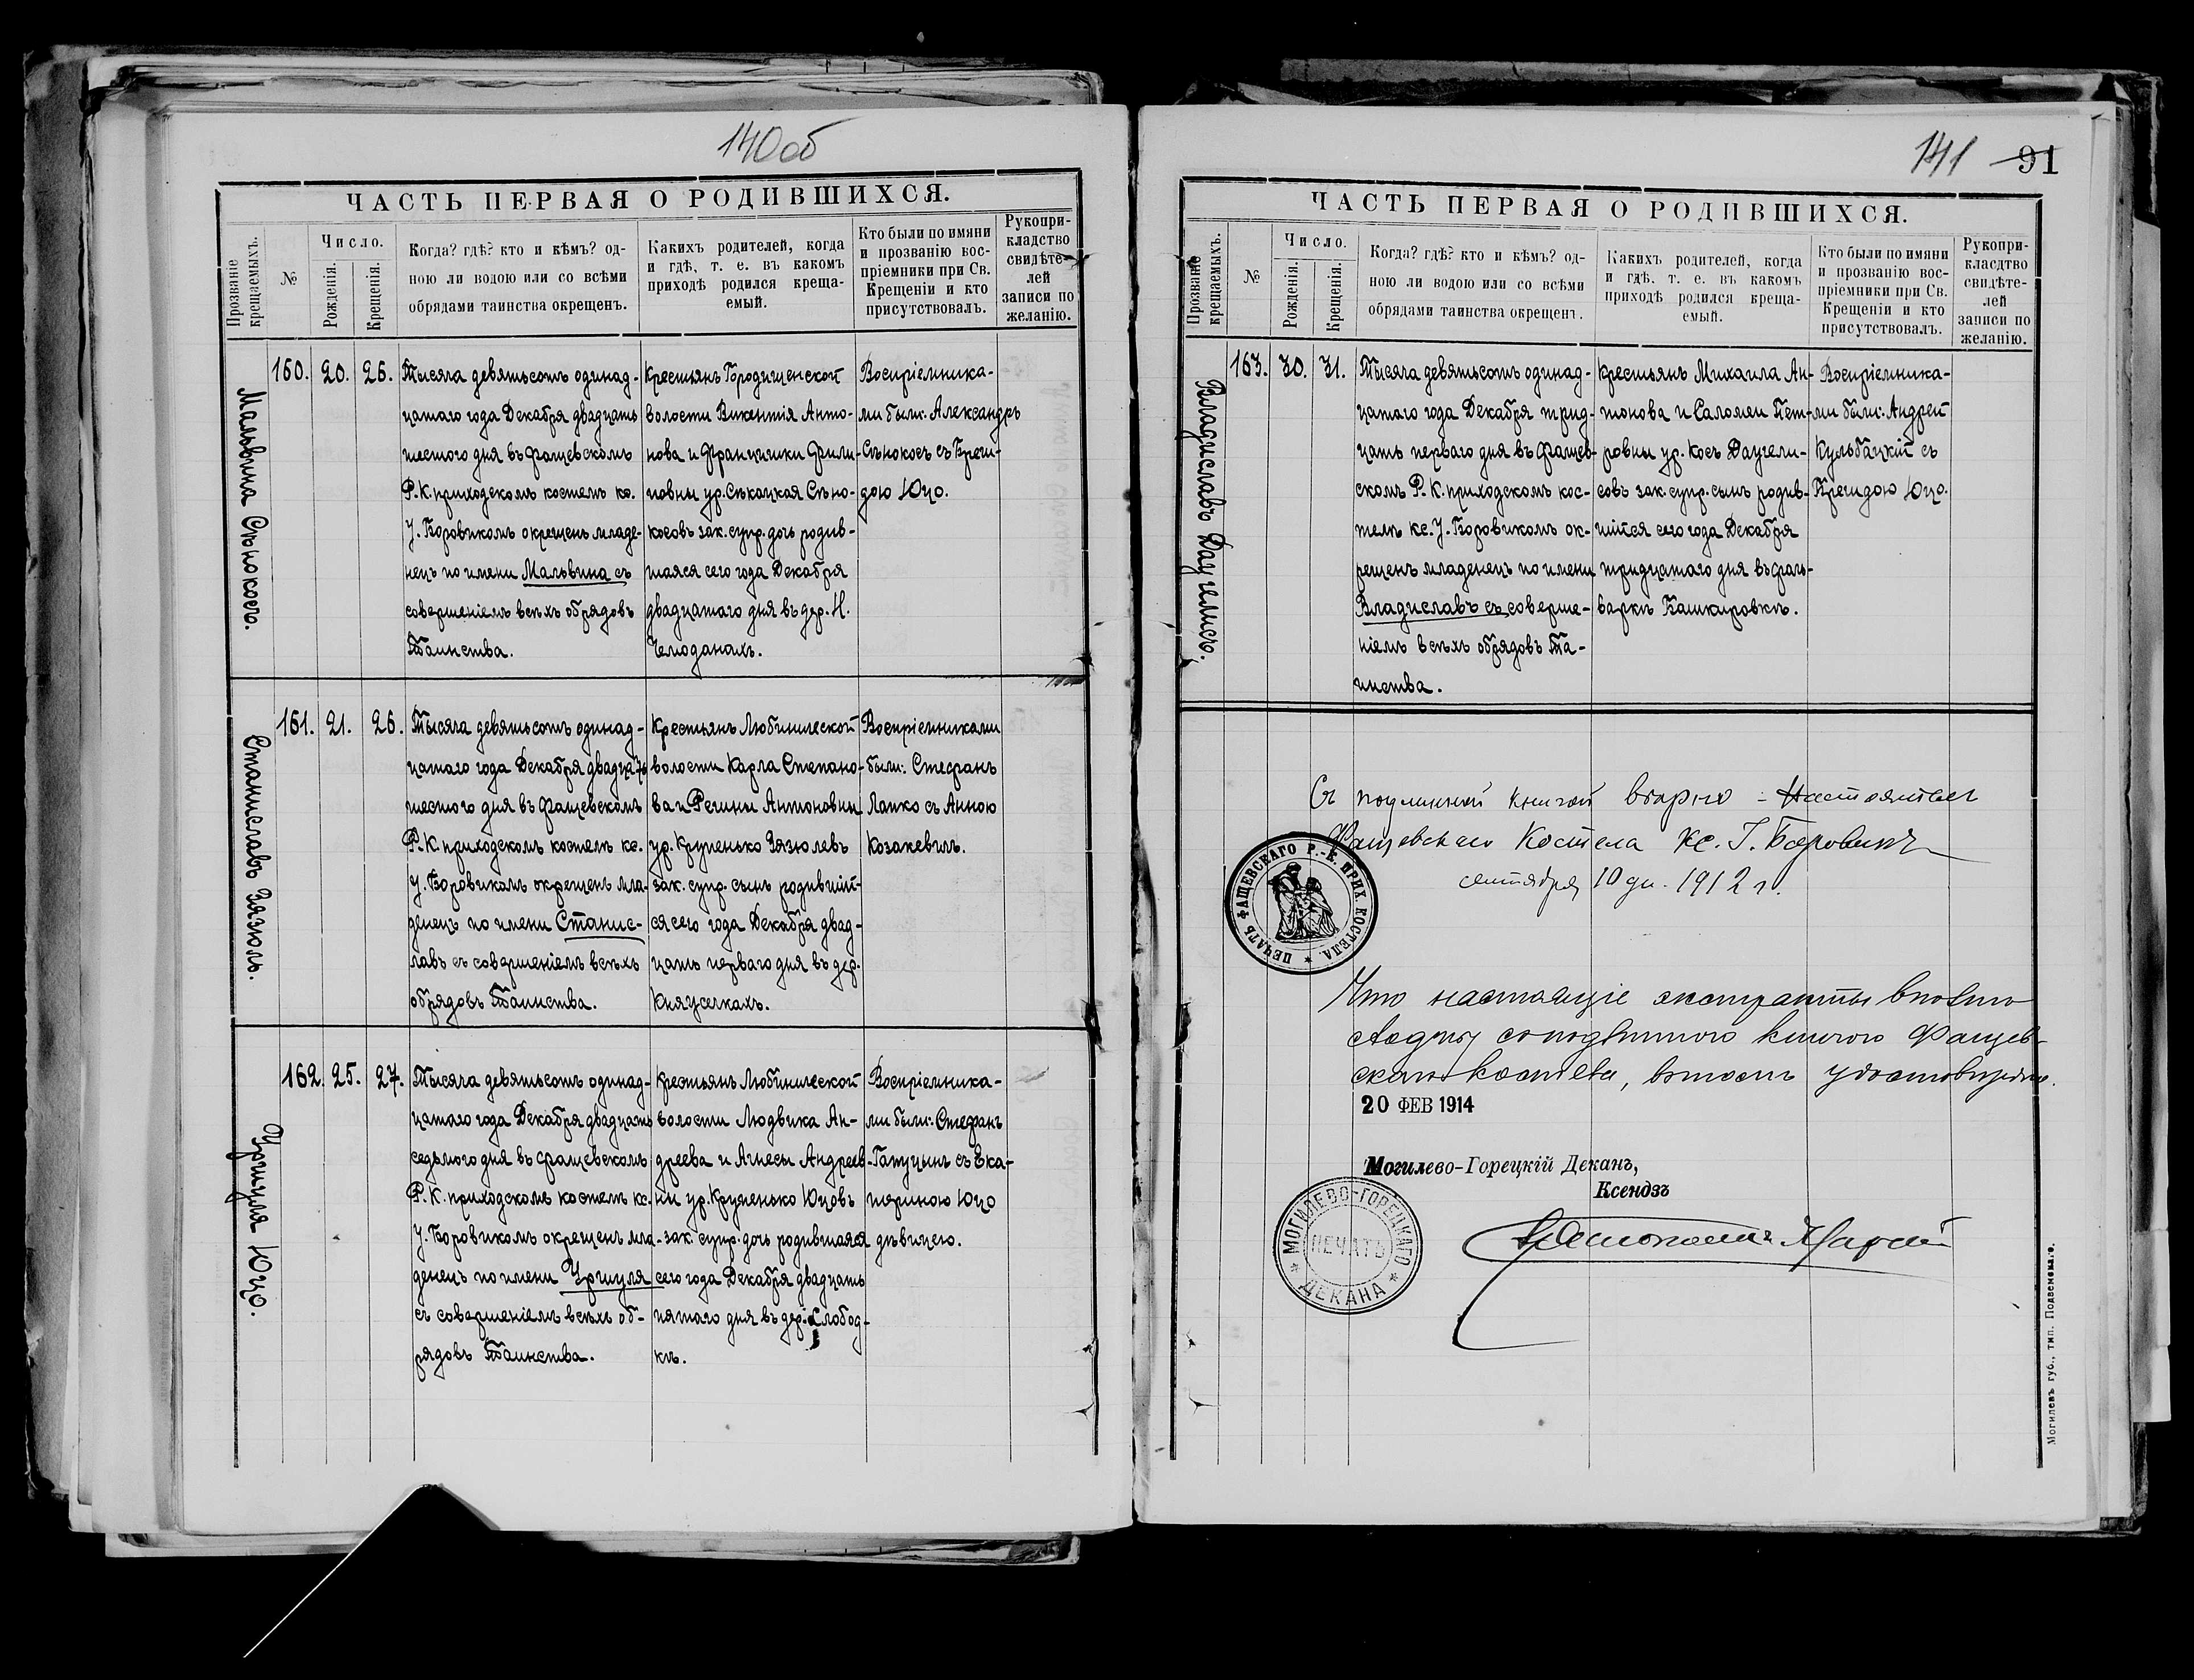 140 об
ЧАСТЬ ПЕРВАЯ О РОДИВШИХСЯ.
Прозваніе крещаемыхъ.
№
Число.
Рожденія.
Крещенія.
Когда? гдѣ? кто и кѣмъ? од-
ною ли водою или со всѣми
обрядами таинства окрещенъ.
Какихъ родителей, когда
и гдѣ, т. е. въ какомъ
приходѣ родился креща-
емый.
Кто были по имяни
и прозванію вос-
пріемники при Св.
Крещеніи и кто
присутствовалъ.
Рукопри-
кладство
свидѣте-
лей
записи по
желанію.
Мальвина Сѣнокосъ.
160.
20.
26.
Тысяча девятьсотъ одинад-
цатаго года Декабря двадцать
шестого дня въ Фащевскомъ
Р.К. приходскомъ костелѣ кс.
І. Боровикомъ окрещенъ младе-
нецъ по имени Мальвина съ
совершеніемъ всѣхъ обрядовъ
Таинства.
Крестьянъ Городищенской
волости Викентія Анто-
нова и Францишки Фили-
повны ур. Сѣкацкая Сѣно-
косовъ зак. супр. дочь родив-
шаяся сего года Декабря
двадцатаго дня въ дер. Н.
Чемоданахъ.
Воспріемника-
ми были: Александръ
Сѣнокосъ съ Бриги-
дою Юцо.
Станиславъ Зязюль.
161.
21.
26.
Тысяча девятьсотъ одинад-
цатаго года Декабря двадцать
шестого дня въ Фащевскомъ
Р.К. приходскомъ костелѣ кс.
І. Боровикомъ окрещенъ мла-
денецъ по имени Станис-
лавъ съ совершеніемъ всѣхъ
обрядовъ Таинства.
Крестьянъ Любиничской
волости Карла Степано-
ва и Регины Антоновны
ур. Крупенько Зязюлевъ
зак. супр. сынъ родившій-
ся сего года Декабря двад-
цать перваго дня въ дер.
Княусечкахъ.
Воспріемниками
были: Стефанъ
Лапко съ Анною
Козакевичъ.
Уршуля Юцо.
162.
25.
27.
Тысяча девятьсотъ одинад-
цатаго года Декабря двадцать
седьмого дня въ Фащевскомъ
Р.К. приходскомъ костелѣ кс.
І. Боровикомъ окрещенъ мла-
денецъ по имени Уршуля
съ совершеніемъ всѣхъ об-
рядовъ Таинства.
Крестьянъ Любиничской
волости Людвика Ан-
дреева и Агнесы Андреев-
ны ур. Крупенько Юцовъ
зак. супр. дочь родившаяся
сего года Декабря двадцать
пятаго дня въ дер. Слобод-
кѣ.
Воспріемника-
ми были: Стефанъ
Гапуцынъ съ Ека-
териною Юцо
дѣвицею.
141 91
ЧАСТЬ ПЕРВАЯ О РОДИВШИХСЯ.
Прозваніе крещаемыхъ.
№
Число.
Рожденія.
Крещенія.
Когда? гдѣ? кто и кѣмъ? од-
ною ли водою или со всѣми
обрядами таинства окрещенъ.
Какихъ родителей, когда
и гдѣ, т. е. въ какомъ
приходѣ родился креща-
емый.
Кто были по имяни
и прозванію вос-
пріемники при Св.
Крещеніи и кто
присутствовалъ.
Рукопри-
класдтво
свидѣте-
лей
записи по
желанію.
Владиславъ Даугелисъ.
163.
30.
31.
Тысяча девятьсотъ одинад-
цатаго года Декабря трид-
цать перваго дня въ Фащев-
скомъ Р.К. приходскомъ кос-
телѣ кс. І. Боровикомъ ок-
рещенъ младенецъ по имени
Владиславъ съ соверше-
ніемъ всѣхъ обрядовъ Та-
инства.
Крестьянъ Михаила Ан-
тонова и Саломеи Пет-
ровны ур. Косъ Даугели-
совъ зак. супр. сынъ родив-
шійся сего года Декабря
тридцатаго дня въ фоль-
варкѣ Кашкировкѣ.
Воспріемника-
ми были: Андрей
Кульбацкій съ
Бригидою Юцо.
Съ подлинной книгой вѣрно - Настоятель
Фащевскаго Костела Кс. І. Боровикъ
сентября 10 дн. 1912 г.
ПЕЧАТЬ ФАЩЕВСКАГО Р.-К. ПРИХ. КОСТЕЛА.
Что настоящіе экстракты вполнѣ
сходны съ подлинною книгою Фащев-
скаго костела, въ томъ удостовѣряю.
20 ФЕВ 1914
Могилево-Горецкій Деканъ,
Ксендзъ
МОГИЛЕВО-ГОРЕЦКАГО ДЕКАНА
ПЕЧАТЬ
Могилевъ губ., тип. Подземскаго.